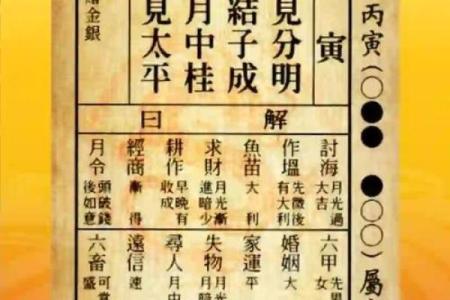 丙寅(○●● ●○○)屬
寅
見分明
結子成
月中桂
見太平
金銀
解曰
討海 月光過大吉
作塭 先微後有大利
魚苗 大利
求財 月光漸進暗少
耕作 早晚有收成
經商 漸得
月令 頭破錢後如意
六甲 先男女
婚姻 大
家運 平
失物 月光月暗
尋人 月中
遠信 速
六畜 可盛